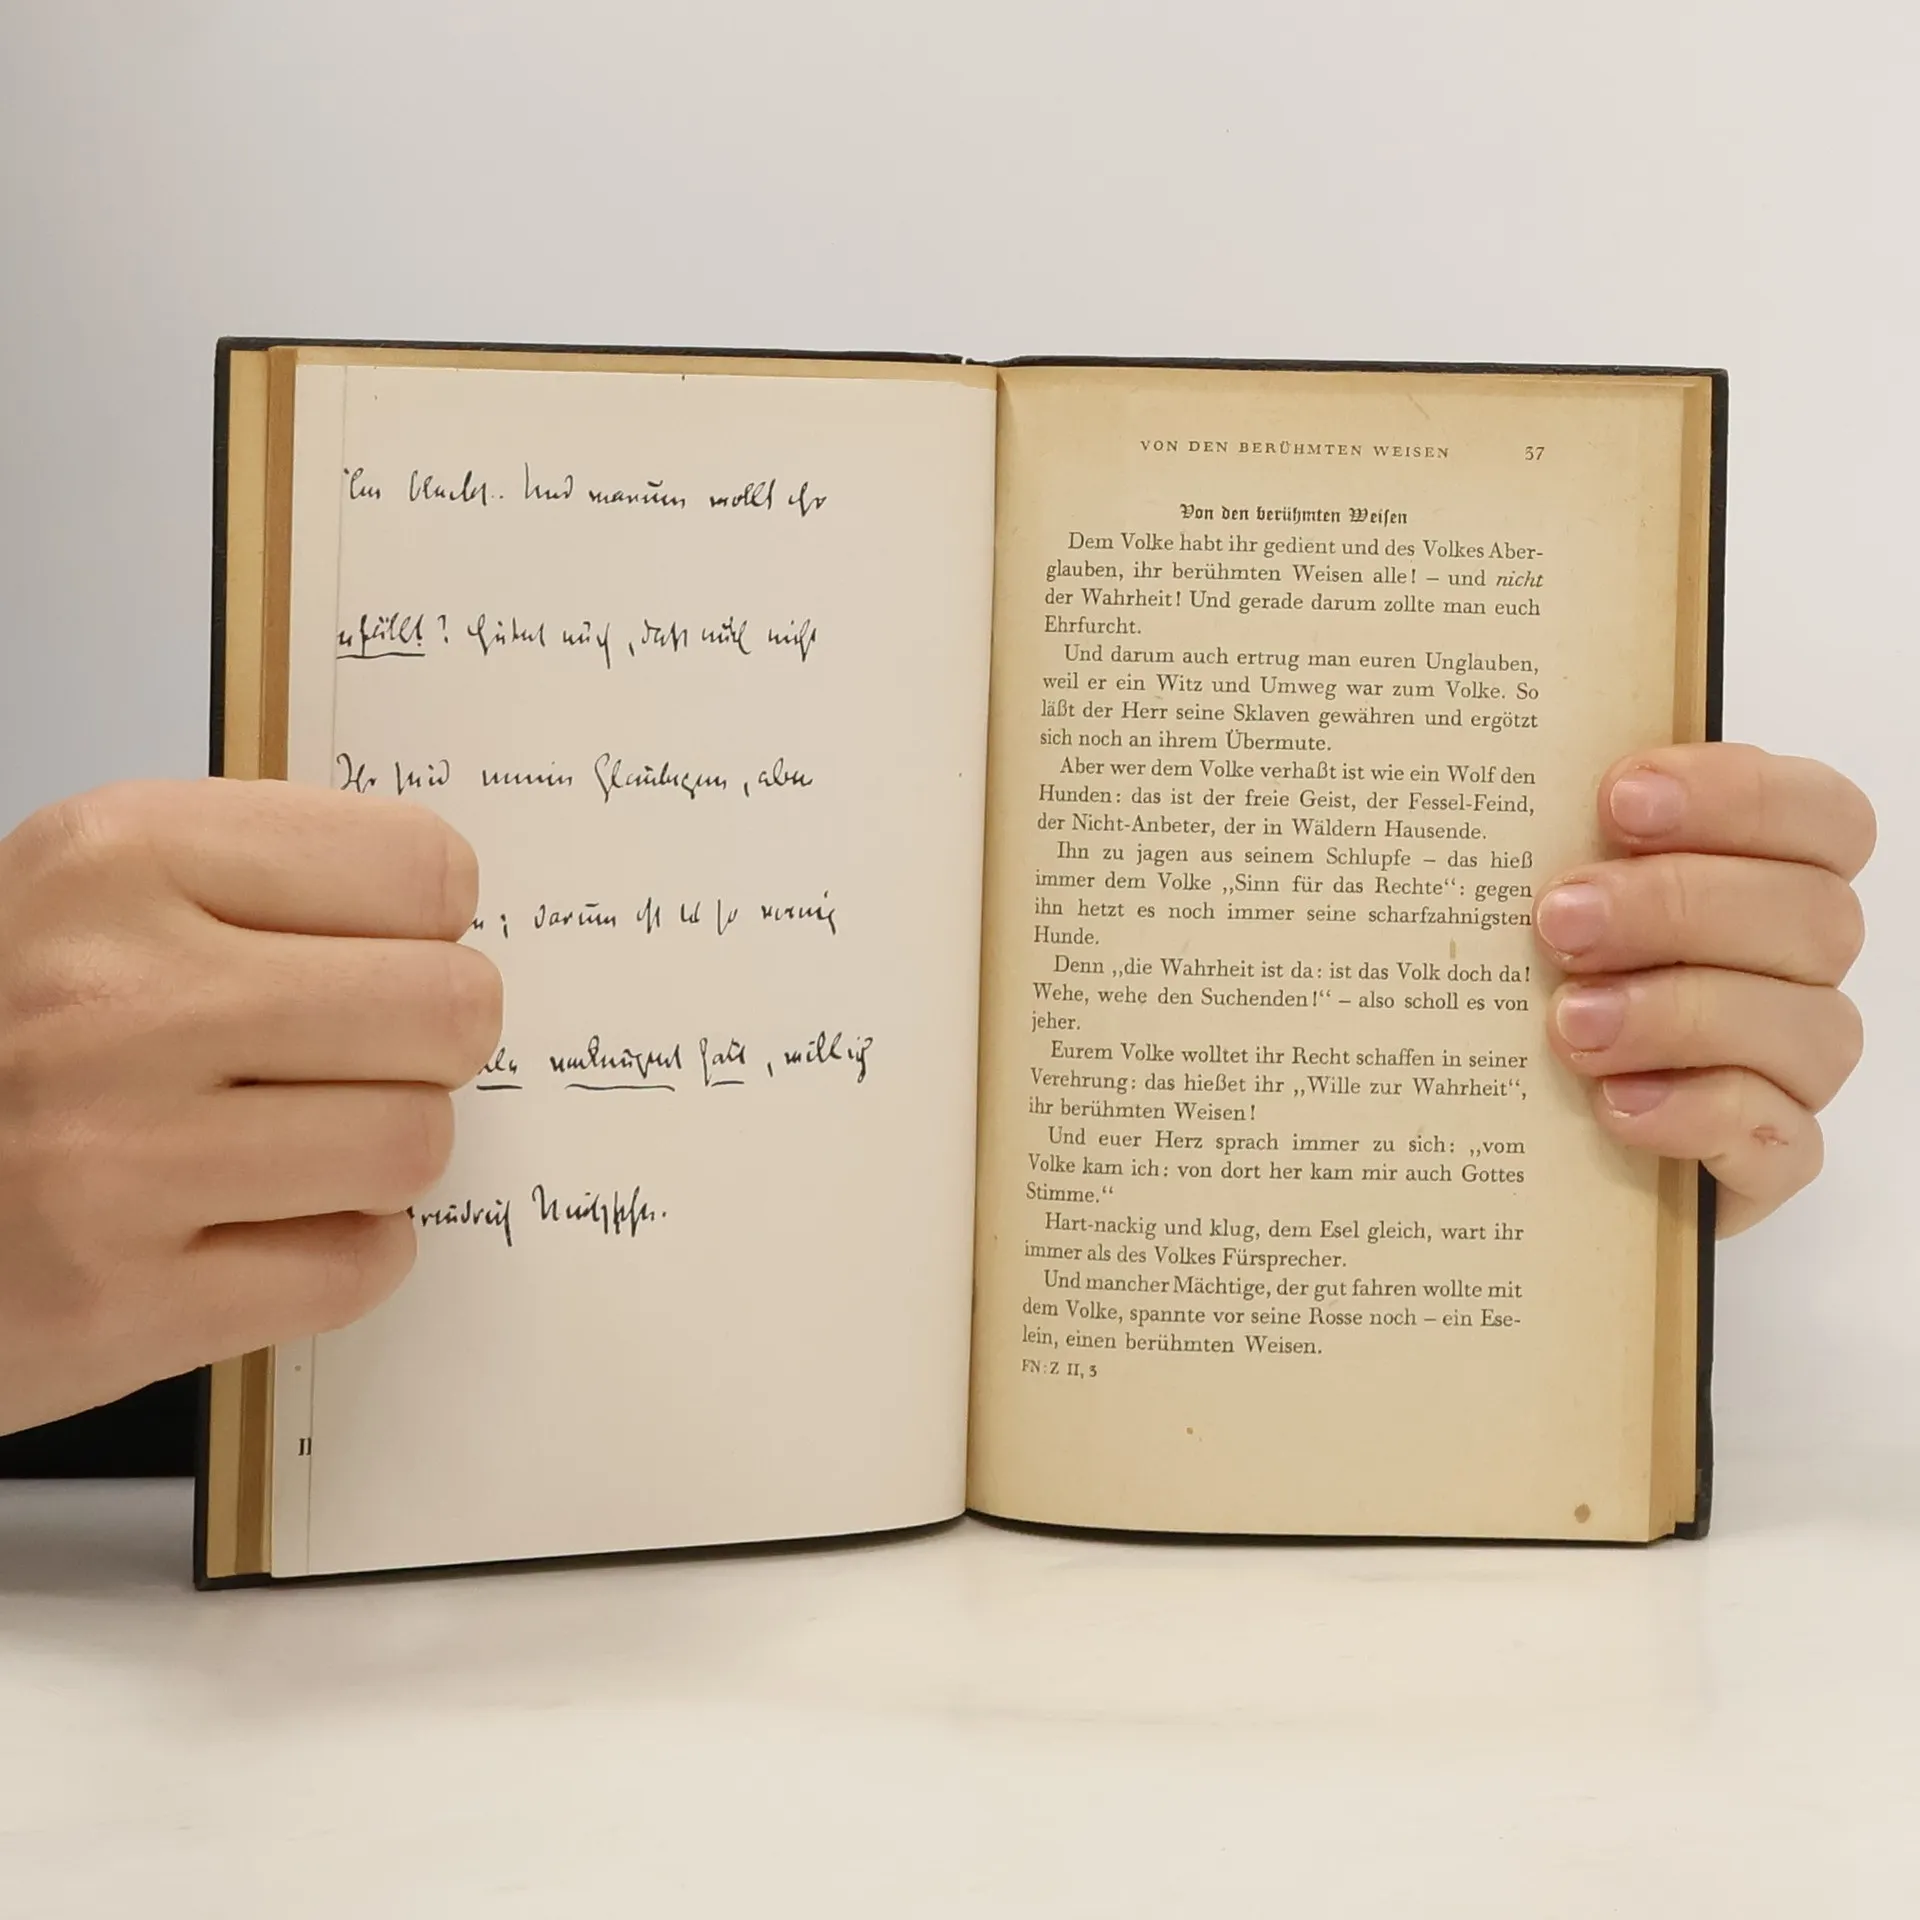 Und warum wollt ihr
umfällt? Hütet euch, dass euch nicht
Ihr seid meine Gläubigen, aber
; darum ist es so wenig
verleugnet habt, will ich
riedrich Nietzsche.
II
VON DEN BERÜHMTEN WEISEN 37
Von den berühmten Weisen
Dem Volke habt ihr gedient und des Volkes Aber-
glauben, ihr berühmten Weisen alle! – und nicht
der Wahrheit! Und gerade darum zollte man euch
Ehrfurcht.
Und darum auch ertrug man euren Unglauben,
weil er ein Witz und Umweg war zum Volke. So
läßt der Herr seine Sklaven gewähren und ergötzt
sich noch an ihrem Übermute.
Aber wer dem Volke verhaßt ist wie ein Wolf den
Hunden: das ist der freie Geist, der Fessel-Feind,
der Nicht-Anbeter, der in Wäldern Hausende.
Ihn zu jagen aus seinem Schlupfe – das hieß
immer dem Volke „Sinn für das Rechte“: gegen
ihn hetzt es noch immer seine scharfzahnigsten
Hunde.
Denn „die Wahrheit ist da: ist das Volk doch da!
Wehe, wehe den Suchenden!“ – also scholl es von
jeher.
Eurem Volke wolltet ihr Recht schaffen in seiner
Verehrung: das hießet ihr „Wille zur Wahrheit“,
ihr berühmten Weisen!
Und euer Herz sprach immer zu sich: „vom
Volke kam ich: von dort her kam mir auch Gottes
Stimme.“
Hart-nackig und klug, dem Esel gleich, wart ihr
immer als des Volkes Fürsprecher.
Und mancher Mächtige, der gut fahren wollte mit
dem Volke, spannte vor seine Rosse noch – ein Ese-
lein, einen berühmten Weisen.
FN:Z II, 3